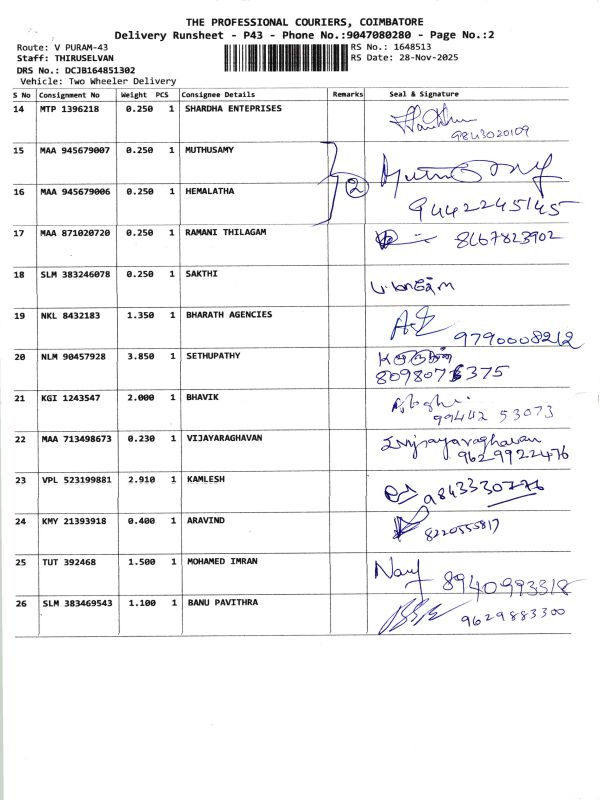 THE PROFESSIONAL COURIERS, COIMBATORE
Delivery Runsheet - P43 - Phone No.:9047080280 - Page No.:2
Route: V PURAM-43 RS No.: 1648513
Staff: THIRUSELVAN RS Date: 28-Nov-2025
DRS No.: DCJB164851302
Vehicle: Two Wheeler Delivery
S No Consignment No Weight PCS Consignee Details Remarks Seal & Signature
14 MTP 1396218 0.250 1 SHARDHA ENTEPRISES
9843020109
15 MAA 945679007 0.250 1 MUTHUSAMY
2
16 MAA 945679006 0.250 1 HEMALATHA
9442245145
17 MAA 871020720 0.250 1 RAMANI THILAGAM 8167823902
18 SLM 383246078 0.250 1 SAKTHI
19 NKL 8432183 1.350 1 BHARATH AGENCIES
9790008212
20 NLM 90457928 3.850 1 SETHUPATHY
21 KGI 1243547 2.000 1 BHAVIK
99442 53073
22 MAA 713498673 0.230 1 VIJAYARAGHAVAN
9629922476
23 VPL 523199881 2.910 1 KAMLESH
9843330776
24 KMY 21393918 0.400 1 ARAVIND
8220555817
25 TUT 392468 1.500 1 MOHAMED IMRAN
8940993318
26 SLM 383469543 1.100 1 BANU PAVITHRA
9629883300